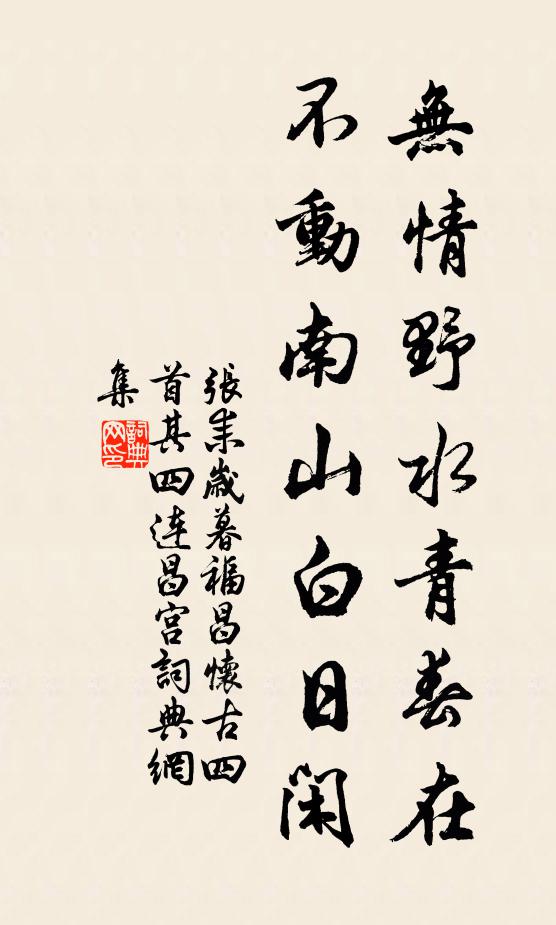 無情野水青春在
不動南山白日閑
張耒歲暮福昌懷古四
首其四連昌宮詞典網
集
詞典网印